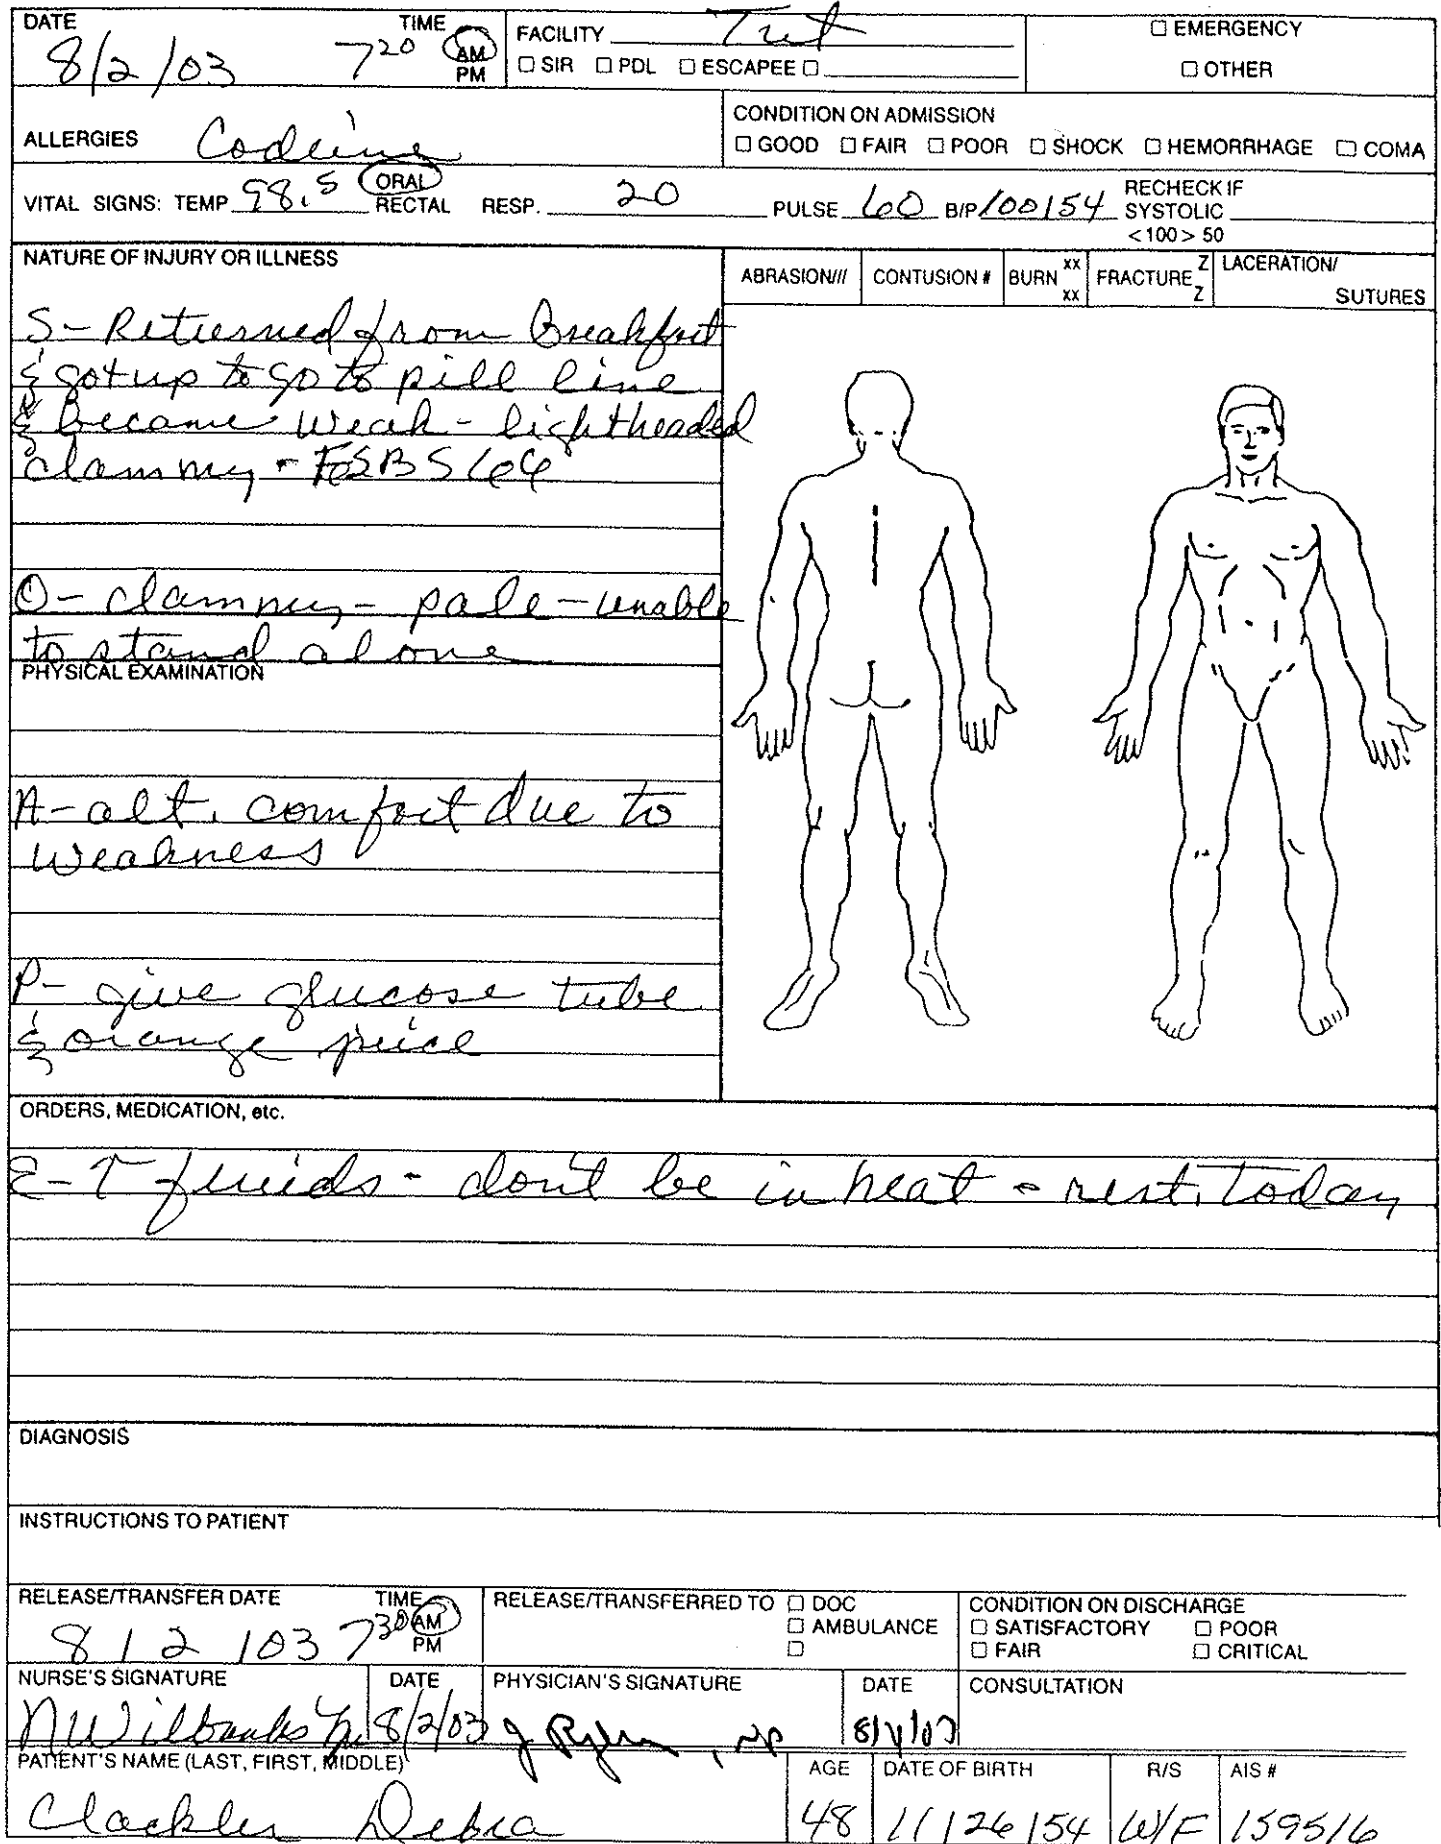 DATE TIME FACILITY Tut ☐ EMERGENCY
8/2/03 7 20 AM PM ☐ SIR ☐ PDL ☐ ESCAPEE ☐ ☐ OTHER
ALLERGIES Codeine
CONDITION ON ADMISSION
☐ GOOD ☐ FAIR ☐ POOR ☐ SHOCK ☐ HEMORRHAGE ☐ COMA
VITAL SIGNS: TEMP 98.5 ORAL RECTAL RESP. 20 PULSE 60 B/P 100/54 RECHECK IF SYSTOLIC <100> 50
NATURE OF INJURY OR ILLNESS
ABRASION/// CONTUSION # BURN xx xx FRACTURE Z Z LACERATION/ SUTURES
S- Returned from Breakfast
& got up to go to pill line
& became weak - lightheaded
clammy - FSBS 66
O- clammy - pale - unable
to stand alone
PHYSICAL EXAMINATION
A- alt. comfort due to
weakness
P- give glucose tube
& orange juice
ORDERS, MEDICATION, etc.
E- ↑ fluids - don't be in heat - rest today
DIAGNOSIS
INSTRUCTIONS TO PATIENT
RELEASE/TRANSFER DATE TIME RELEASE/TRANSFERRED TO ☐ DOC CONDITION ON DISCHARGE
8/2/03 7 30 AM PM ☐ AMBULANCE ☐ ☐ SATISFACTORY ☐ POOR
☐ FAIR ☐ CRITICAL
NURSE'S SIGNATURE DATE PHYSICIAN'S SIGNATURE DATE CONSULTATION
NWilbanks 8/2/03 J , NP
PATIENT'S NAME (LAST, FIRST, MIDDLE) AGE DATE OF BIRTH R/S AIS #
Clackler Debra 48 11/26/54 W/F 159516